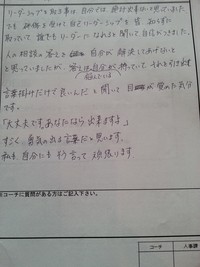 リーダーシップを取る事は自分では絶対出来ないと思っていました
でも研修を受けて自己リーダーシップも皆、知らずに
取っていて誰でもリーダーになれると聞いて自信がつきました。
人の相談の答えを自分が解決してあげないと
と思っていましたが、答えは自分が持っていて、それを引き出す
悩んでいる
言葉掛けだけで良いんだと聞いて目が覚めた気分
です。
「大丈夫です。あなたなら出来ますよ。」
すごく勇気の出る言葉だと思います。
私も自分にもそう言って頑張ります。
※コーチに質問がある方はご記入下さい。
コーチ
人事課